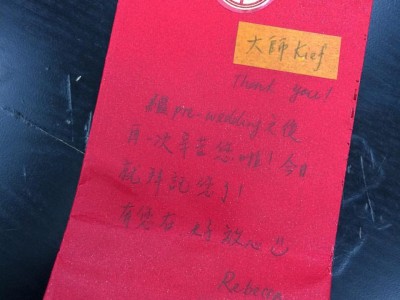 大師Kief
Thank you!
繼pre-wedding之後
再一次辛苦您啦！今日
就拜託您了！
有您在 好放心
Rebecca